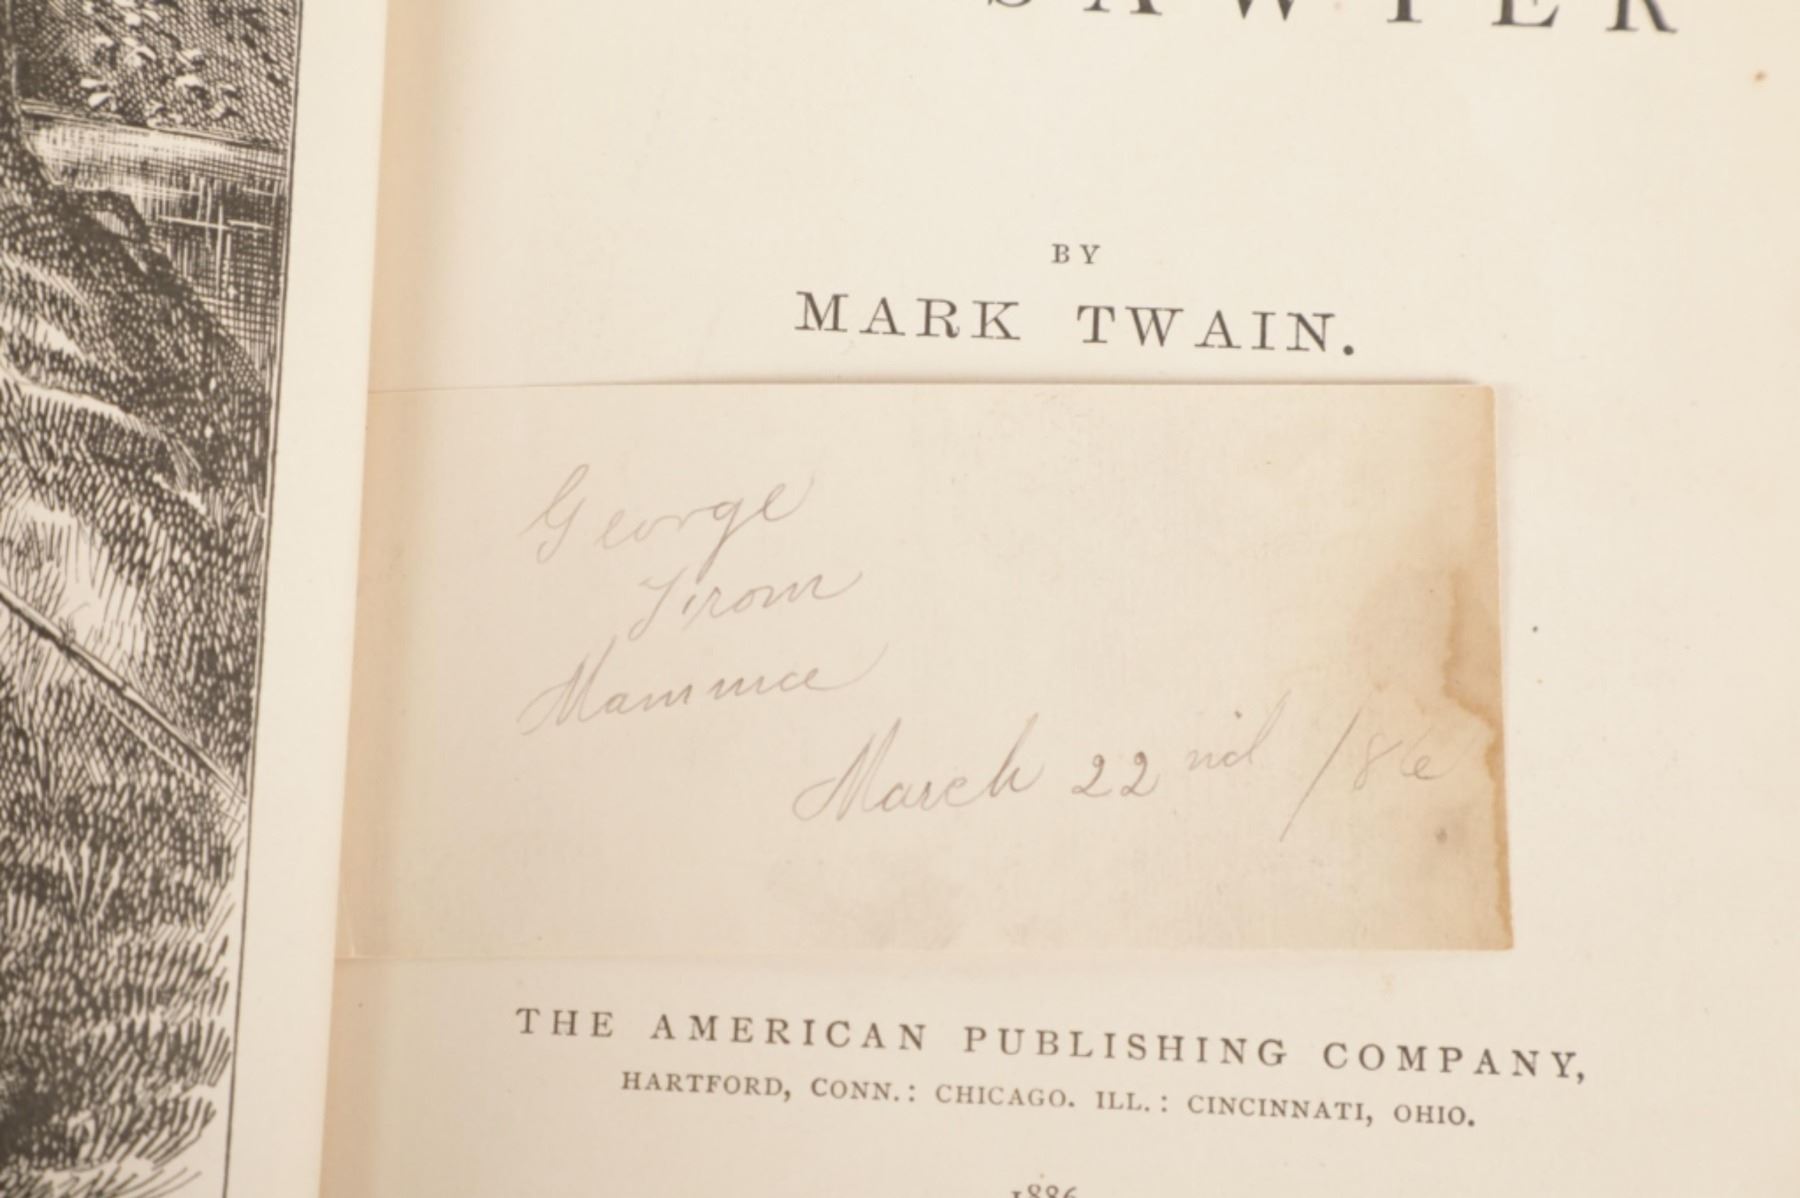 SAWYER
BY
MARK TWAIN.
George
From
Mammie
March 22nd /86
THE AMERICAN PUBLISHING COMPANY,
HARTFORD, CONN.: CHICAGO. ILL.: CINCINNATI, OHIO.
1886